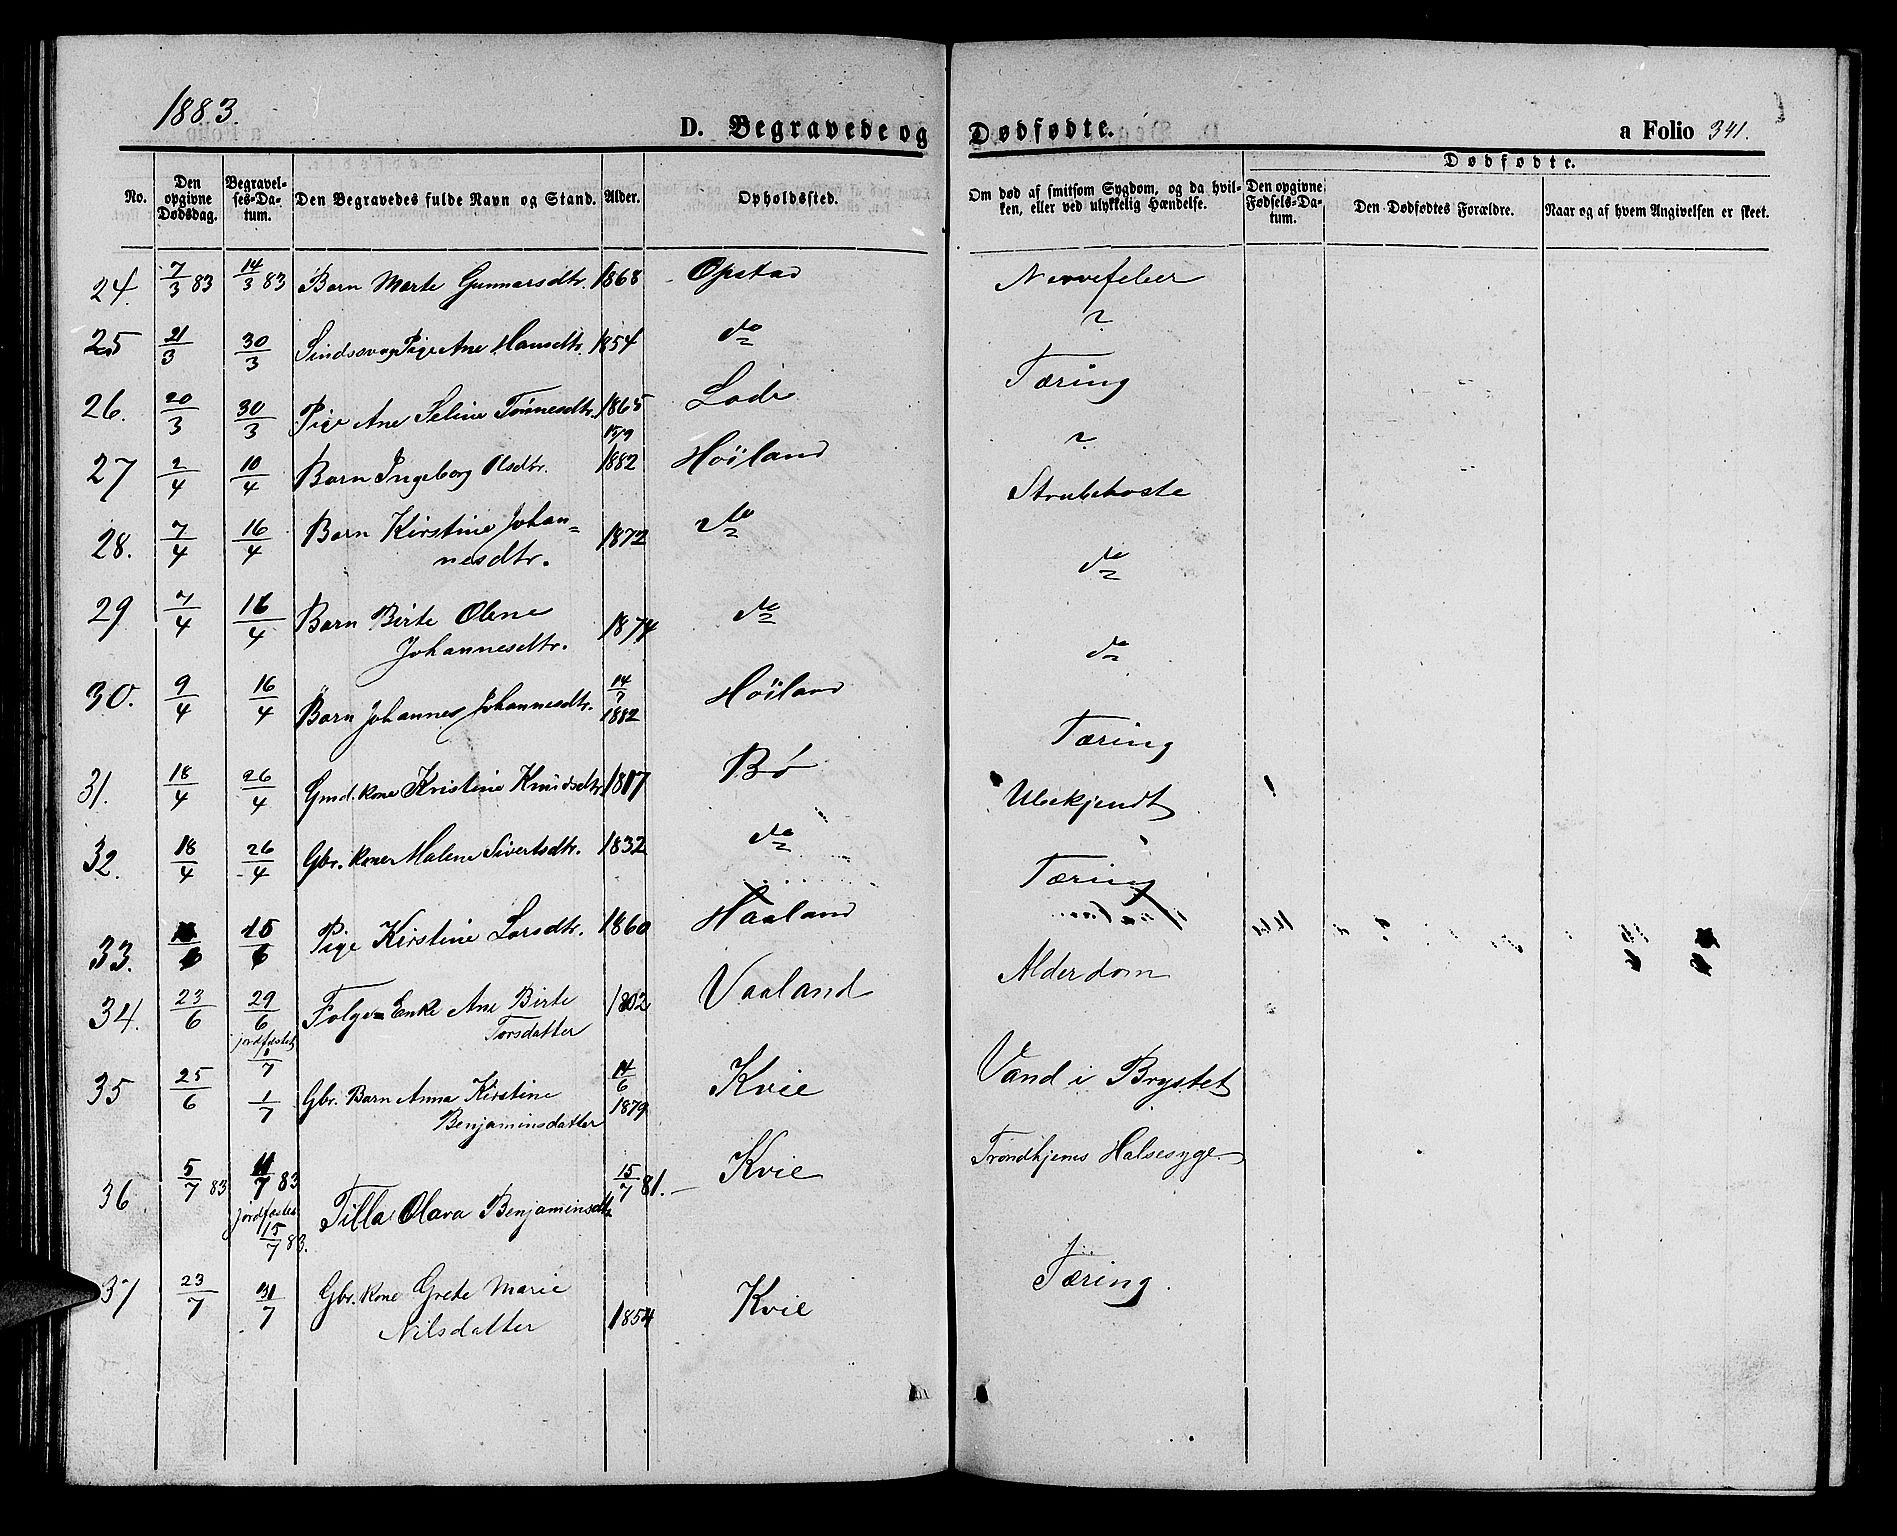 1883.
D. Begravede og Dødfødte.
a Folio 341.
No.
Den opgivne Dødsdag.
Begravelses-Datum.
Den Begravedes fulde Navn og Stand.
Alder.
Opholdssted.
Om død af smitsom Sygdom, og da hvilken, eller ved ulykkelig Hændelse.
Dødfødte.
Den opgivne Fødsels-Datum.
Den Dødfødtes Forældre.
Naar og af hvem Angivelsen er skeet.
24. 7/3 83 14/3 83 Barn Marte Gunnarsdtr. 1868 Opstad Nervefeber
25 21/3 30/3 Sindssvag Pige Ane Hansdtr. 1854 do ?
26. 20/3 30/3 Pige Ane Seline Tønnesdtr. 1865 Lode Tæring
27 2/4 10/4 Barn Ingeborg Olsdtr. 15/9 1882 Höiland ?
28. 7/4 16/4 Barn Kirstine Johan=
nesdtr. 1872 do Strubehoste
29 7/4 16/4 Barn Birte Olene
Johannesdtr. 1874 do do
30. 9/4 16/4 Barn Johannes Johannesdtr. 14/7 1882 Höiland do
31. 18/4 26/4 Gmd. kone Kristine Knudsdtr 1817 Bö Tæring
32. 18/4 26/4 Gbr. kone Malene Sivertsdtr. 1832 do Ubekjendt
33. 15/6 Pige Kirstine Larsdtr. 1860 Haaland Tæring
34. 23/6 29/6 Folge= Enke Ane Birte
Torsdatter 1802 Vaaland Alderdom
jordfæstet /7
35 25/6 1/7 Gbr. Barn Anna Kirstine
Benjaminsdatter 14/6 1879 Kvie Vand i Brystet
36. 5/7 83 11/7 83 Tilla Olava Benjaminsdtr 15/7 81. Kvie Trondhjems Halsesyge
jordfæstet 15/7 83.
37 23/7 31/7 Gbr. kone Grete Marie
Nilsdatter 1854 Kvie Tæring.